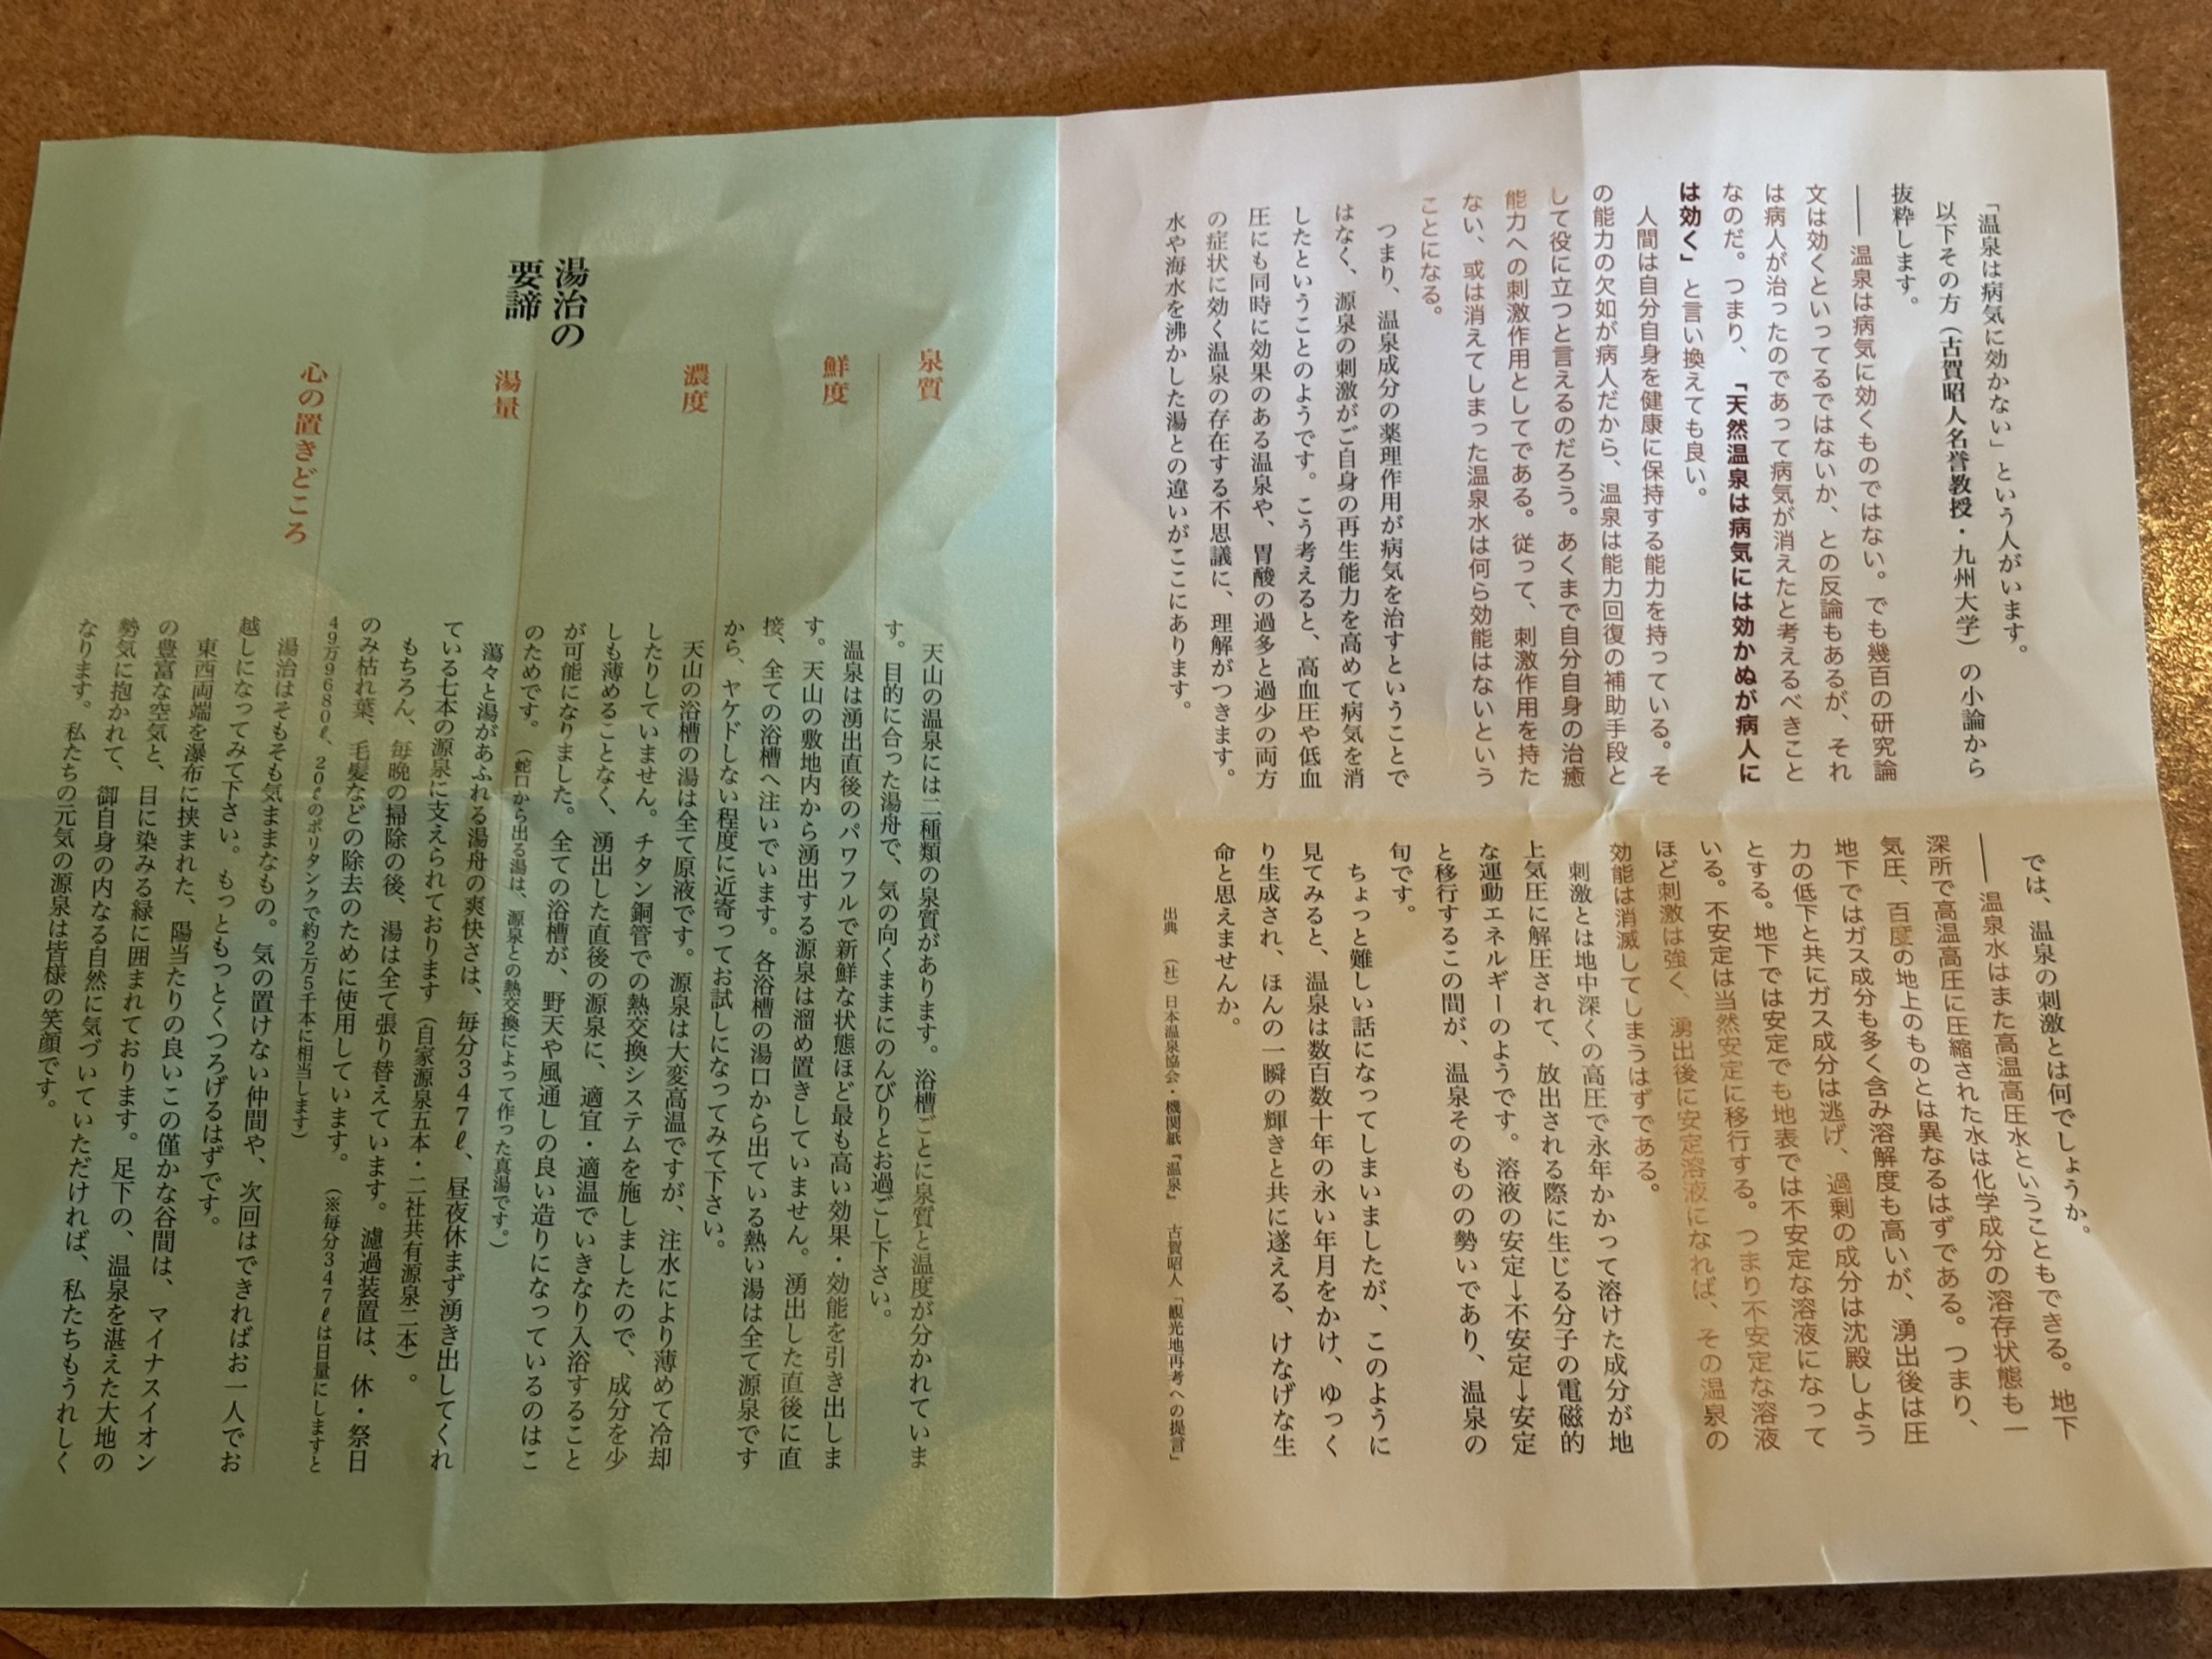 「温泉は病気に効かない」という人がいます。
以下その方（古賀昭人名誉教授・九州大学）の小論から
抜粋します。
―― 温泉は病気に効くものではない。でも幾百の研究論
文は効くといってるではないか、との反論もあるが、それ
は病人が治ったのであって病気が消えたと考えるべきこと
なのだ。つまり、「天然温泉は病気には効かぬが病人に
は効く」と言い換えても良い。
人間は自分自身を健康に保持する能力を持っている。そ
の能力の欠如が病人だから、温泉は能力回復の補助手段と
して役に立つと言えるのだろう。あくまで自分自身の治癒
能力への刺激作用としてである。従って、刺激作用を持た
ない、或は消えてしまった温泉水は何ら効能はないという
ことになる。
つまり、温泉成分の薬理作用が病気を治すということで
はなく、源泉の刺激がご自身の再生能力を高めて病気を消
したということのようです。こう考えると、高血圧や低血
圧にも同時に効果のある温泉や、胃酸の過多と過少の両方
の症状に効く温泉の存在する不思議に、理解がつきます。
水や海水を沸かした湯との違いがここにあります。
では、温泉の刺激とは何でしょうか。
―― 温泉水はまた高温高圧水ということもできる。地下
深所で高温高圧に圧縮された水は化学成分の溶存状態も一
気圧、百度の地上のものとは異なるはずである。つまり、
地下ではガス成分も多く含み溶解度も高いが、湧出後は圧
力の低下と共にガス成分は逃げ、過剰の成分は沈殿しよう
とする。地下では安定でも地表では不安定な溶液になって
いる。不安定は当然安定に移行する。つまり不安定な溶液
ほど刺激は強く、湧出後に安定溶液になれば、その温泉の
効能は消滅してしまうはずである。
刺激とは地中深くの高圧で永年かかって溶けた成分が地
上気圧に解圧されて、放出される際に生じる分子の電磁的
な運動エネルギーのようです。溶液の安定→不安定→安定
と移行するこの間が、温泉そのものの勢いであり、温泉の
旬です。
ちょっと難しい話になってしまいましたが、このように
見てみると、温泉は数百数十年の永い年月をかけ、ゆっく
り生成され、ほんの一瞬の輝きと共に遂える、けなげな生
命と思えませんか。
出典　（社）日本温泉協会・機関紙『温泉』　古賀昭人「観光地再考への提言」
湯治の
要諦
泉質
天山の温泉には二種類の泉質があります。浴槽ごとに泉質と温度が分かれていま
す。目的に合った湯舟で、気の向くままにのんびりとお過ごし下さい。
鮮度
温泉は湧出直後のパワフルで新鮮な状態ほど最も高い効果・効能を引き出しま
す。天山の敷地内から湧出する源泉は溜め置きしていません。湧出した直後に直
接、全ての浴槽へ注いでいます。各浴槽の湯口から出ている熱い湯は全て源泉です
から、ヤケドしない程度に近寄ってお試しになってみて下さい。
濃度
天山の浴槽の湯は全て原液です。源泉は大変高温ですが、注水により薄めて冷却
したりしていません。チタン銅管での熱交換システムを施しましたので、成分を少
しも薄めることなく、湧出した直後の源泉に、適宜・適温でいきなり入浴すること
が可能になりました。全ての浴槽が、野天や風通しの良い造りになっているのはこ
のためです。（蛇口から出る湯は、源泉との熱交換によって作った真湯です。）
湯量
蕩々と湯があふれる湯舟の爽快さは、毎分347ℓ、昼夜休まず湧き出してくれ
ている七本の源泉に支えられております（自家源泉五本・二社共有源泉二本）。
もちろん、毎晩の掃除の後、湯は全て張り替えています。濾過装置は、休・祭日
のみ枯れ葉、毛髪などの除去のために使用しています。（※毎分347ℓは日量にしますと
49万9680ℓ、20ℓのポリタンクで約2万5千本に相当します）
心の置きどころ
湯治はそもそも気ままなもの。気の置けない仲間や、次回はできればお一人でお
越しになってみて下さい。もっともっとくつろげるはずです。
東西両端を瀑布に挟まれた、陽当たりの良いこの僅かな谷間は、マイナスイオン
の豊富な空気と、目に染みる緑に囲まれております。足下の、温泉を湛えた大地の
勢気に抱かれて、御自身の内なる自然に気づいていただければ、私たちもうれしく
なります。私たちの元気の源泉は皆様の笑顔です。